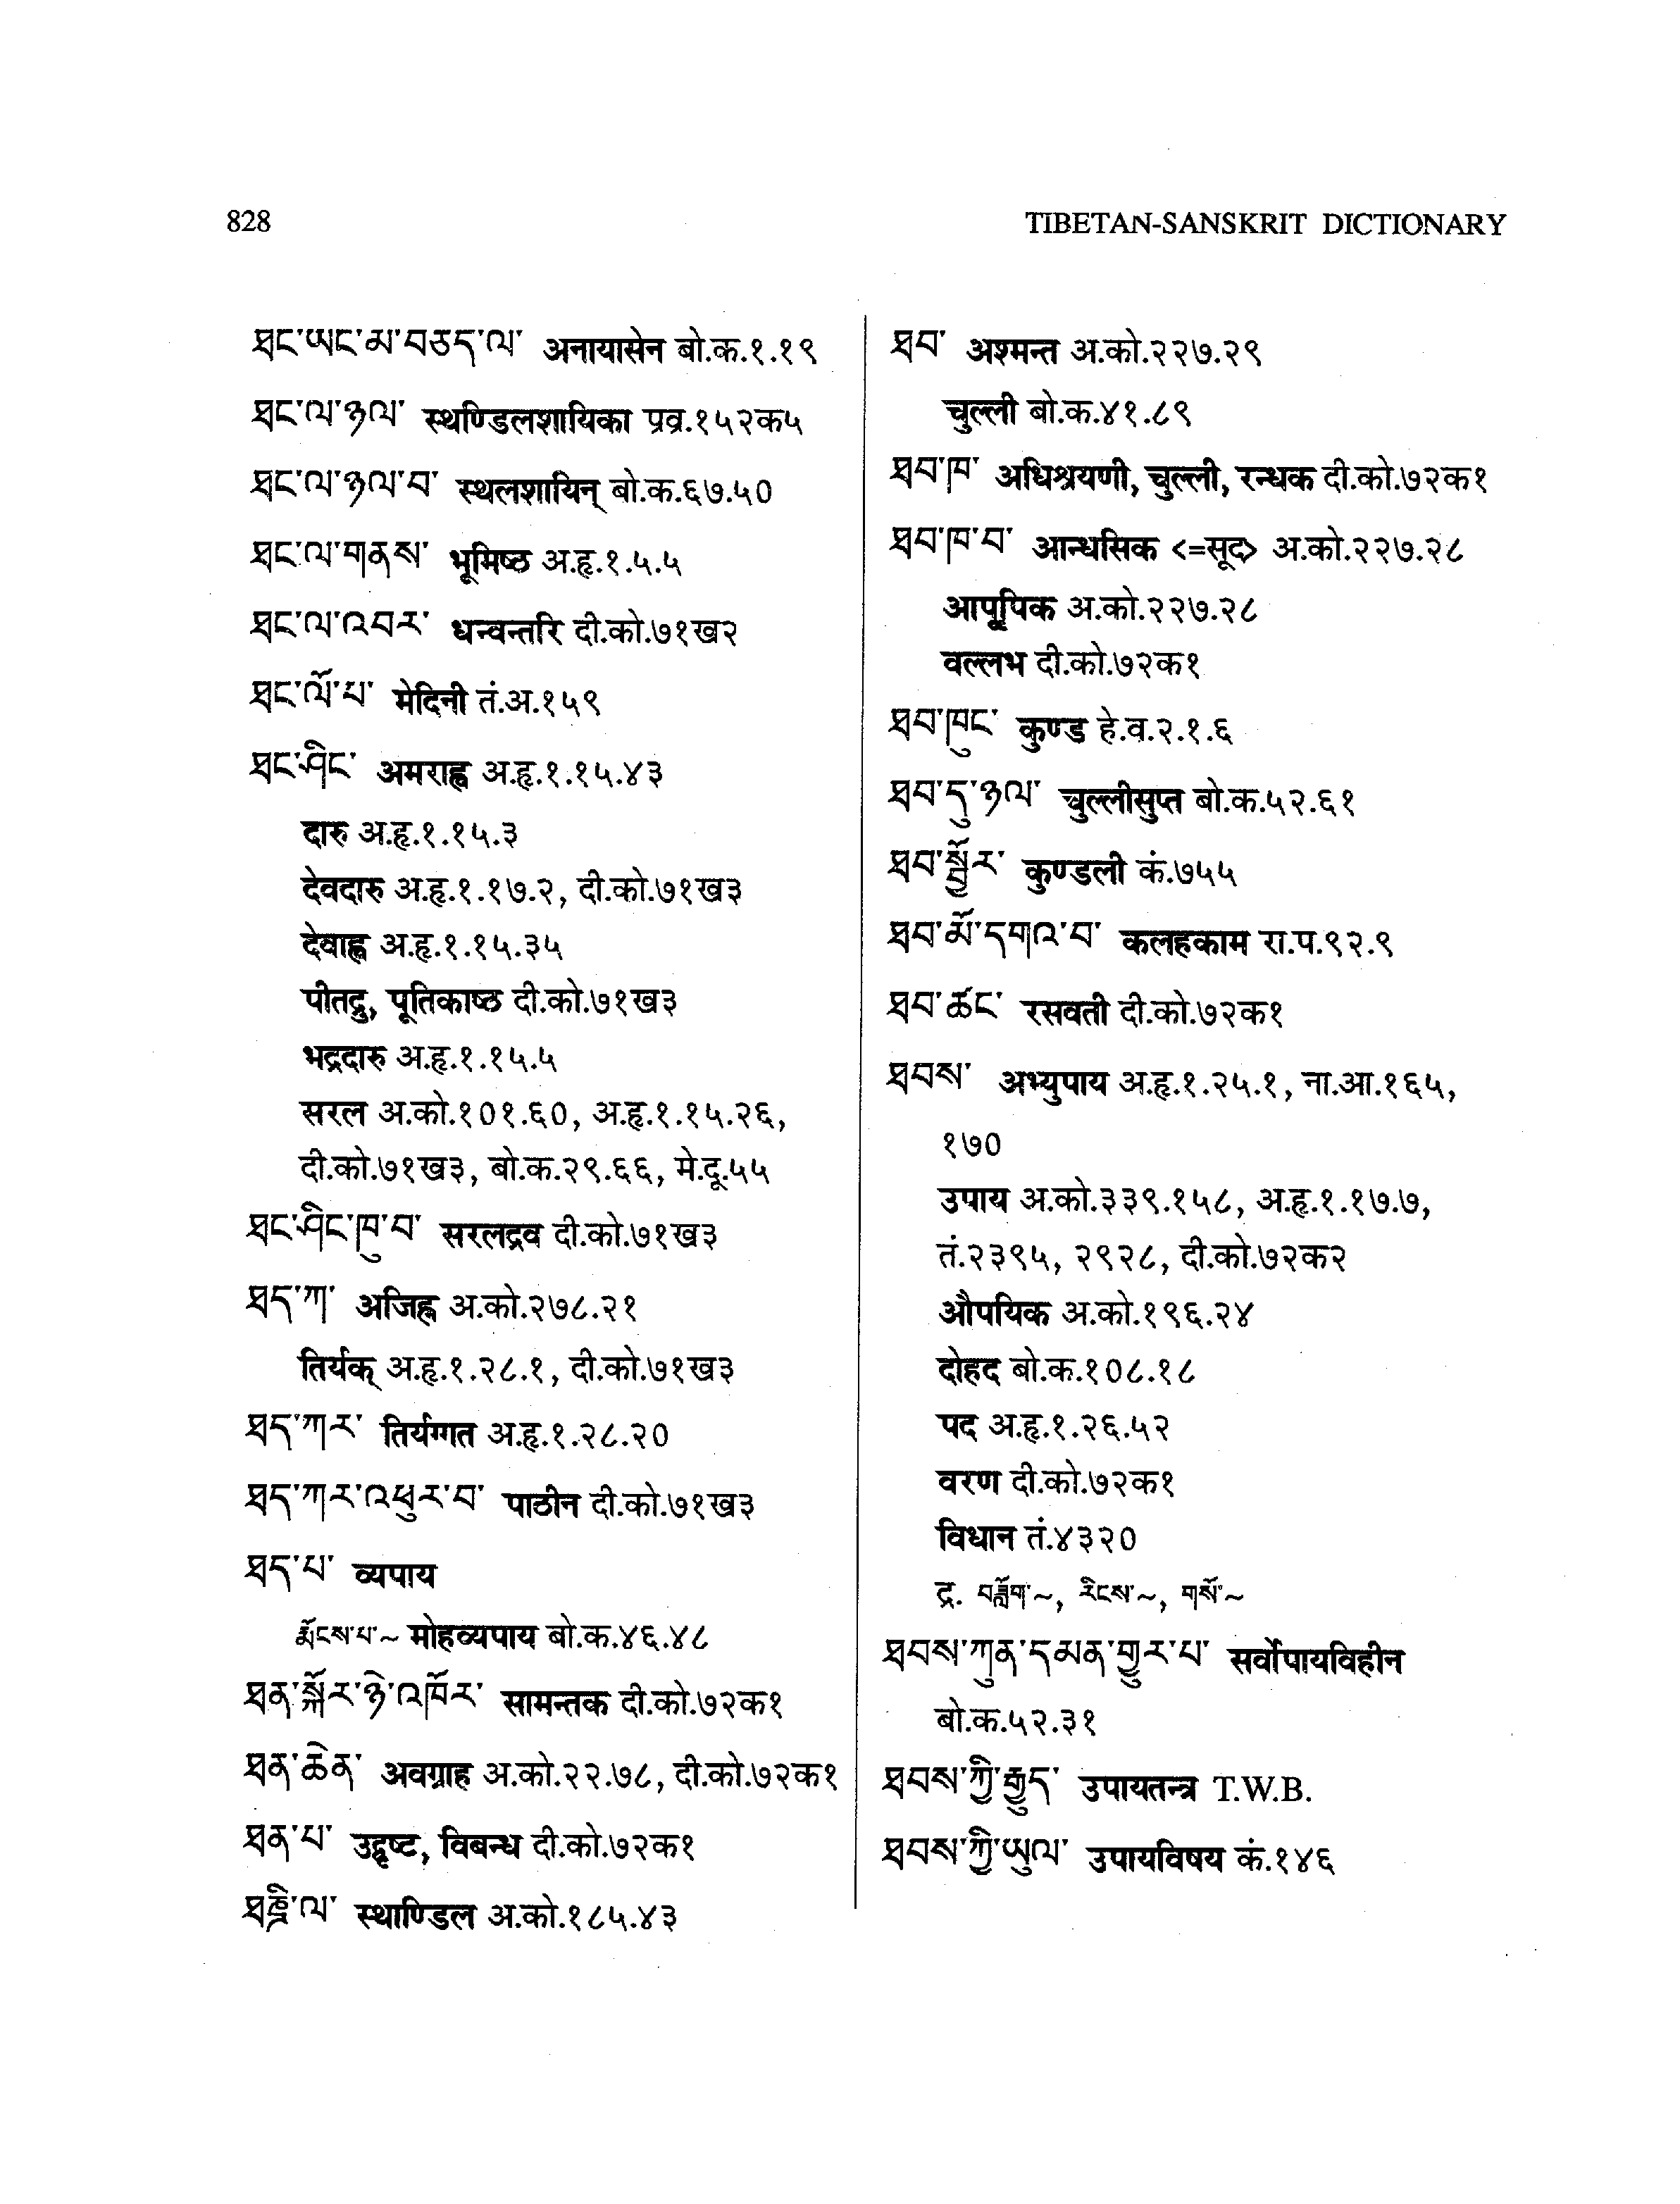 828
TIBETAN-SANSKRIT DICTIONARY
ཐང་ཡང་མ་བཅད་ལ་ अनायासेन बो.क.१.१९
ཐང་ལ་ཉལ་ स्थण्डिलशायिका प्रव्र.१५२क५
ཐང་ལ་ཉལ་བ་ स्थलशायिन् बो.क.६७.५०
ཐང་ལ་གནས་ भूमिष्ठ अ.हृ.१.५.५
ཐང་ལ་འབར་ धन्वन्तरि दी.को.७१ख२
ཐང་ལོ་པ་ मेदिनी तं.अ.१५९
ཐང་ཤིང་ अमराह्व अ.हृ.१.१५.४३
दारु अ.हृ.१.१५.३
देवदारु अ.हृ.१.१७.२, दी.को.७१ख३
देवाह्व अ.हृ.१.१५.३५
पीतद्रु, पूतिकाष्ठ दी.को.७१ख३
भद्रदारु अ.हृ.१.१५.५
सरल अ.को.१०१.६०, अ.हृ.१.१५.२६,
दी.को.७१ख३, बो.क.२९.६६, मे.दू.५५
ཐང་ཤིང་ཁུ་བ་ सरलद्रव दी.को.७१ख३
ཐད་ཀ་ अजिह्म अ.को.२७८.२१
तिर्यक् अ.हृ.१.२८.१, दी.को.७१ख३
ཐད་ཀར་ तिर्यग्गत अ.हृ.१.२८.२०
ཐད་ཀར་འཕུར་བ་ पाठीन दी.को.७१ख३
ཐད་པ་ व्यपाय
རྨོངས་པ་~ मोहव्यपाय बो.क.४६.४८
ཐན་སྐོར་ཉེ་འཁོར་ सामन्तक दी.को.७२क१
ཐན་ཆེན་ अवग्राह अ.को.२२.७८, दी.को.७२क१
ཐན་པ་ उद्घृष्ट, विबन्ध दी.को.७२क१
ཐཎྜི་ལ་ स्थाण्डिल अ.को.१८५.४३
ཐབ་ अश्मन्त अ.को.२२७.२९
चुल्ली बो.क.४१.८९
ཐབ་ཁ་ अधिश्रयणी, चुल्ली, रन्धक दी.को.७२क१
ཐབ་ཁ་བ་ आन्धसिक <=सूद> अ.को.२२७.२८
आपूपिक अ.को.२२७.२८
वल्लभ दी.को.७२क१
ཐབ་ཁུང་ कुण्ड हे.व.२.१.६
ཐབ་དུ་ཉལ་ चुल्लीसुप्त बो.क.५२.६१
ཐབ་སྦྱོར་ कुण्डली कं.७५५
ཐབ་མོ་དགའ་བ་ कलहकाम रा.प.९२.९
ཐབ་ཚང་ रसवती दी.को.७२क१
ཐབས་ अभ्युपाय अ.हृ.१.२५.१, ना.आ.१६५,
१७०
उपाय अ.को.३३९.१५८, अ.हृ.१.१७.७,
तं.२३९५, २९२८, दी.को.७२क२
औपयिक अ.को.१९६.२४
दोहद बो.क.१०८.१८
पद अ.हृ.१.२६.५२
वरण दी.को.७२क१
विधान तं.४३२०
द्र. བཟློག་~, རིངས་~, གསོ་~
ཐབས་ཀུན་དམན་གྱུར་པ་ सर्वोपायविहीन
बो.क.५२.३१
ཐབས་ཀྱི་རྒྱུད་ उपायतन्त्र T.W.B.
ཐབས་ཀྱི་ཡུལ་ उपायविषय कं.१४६